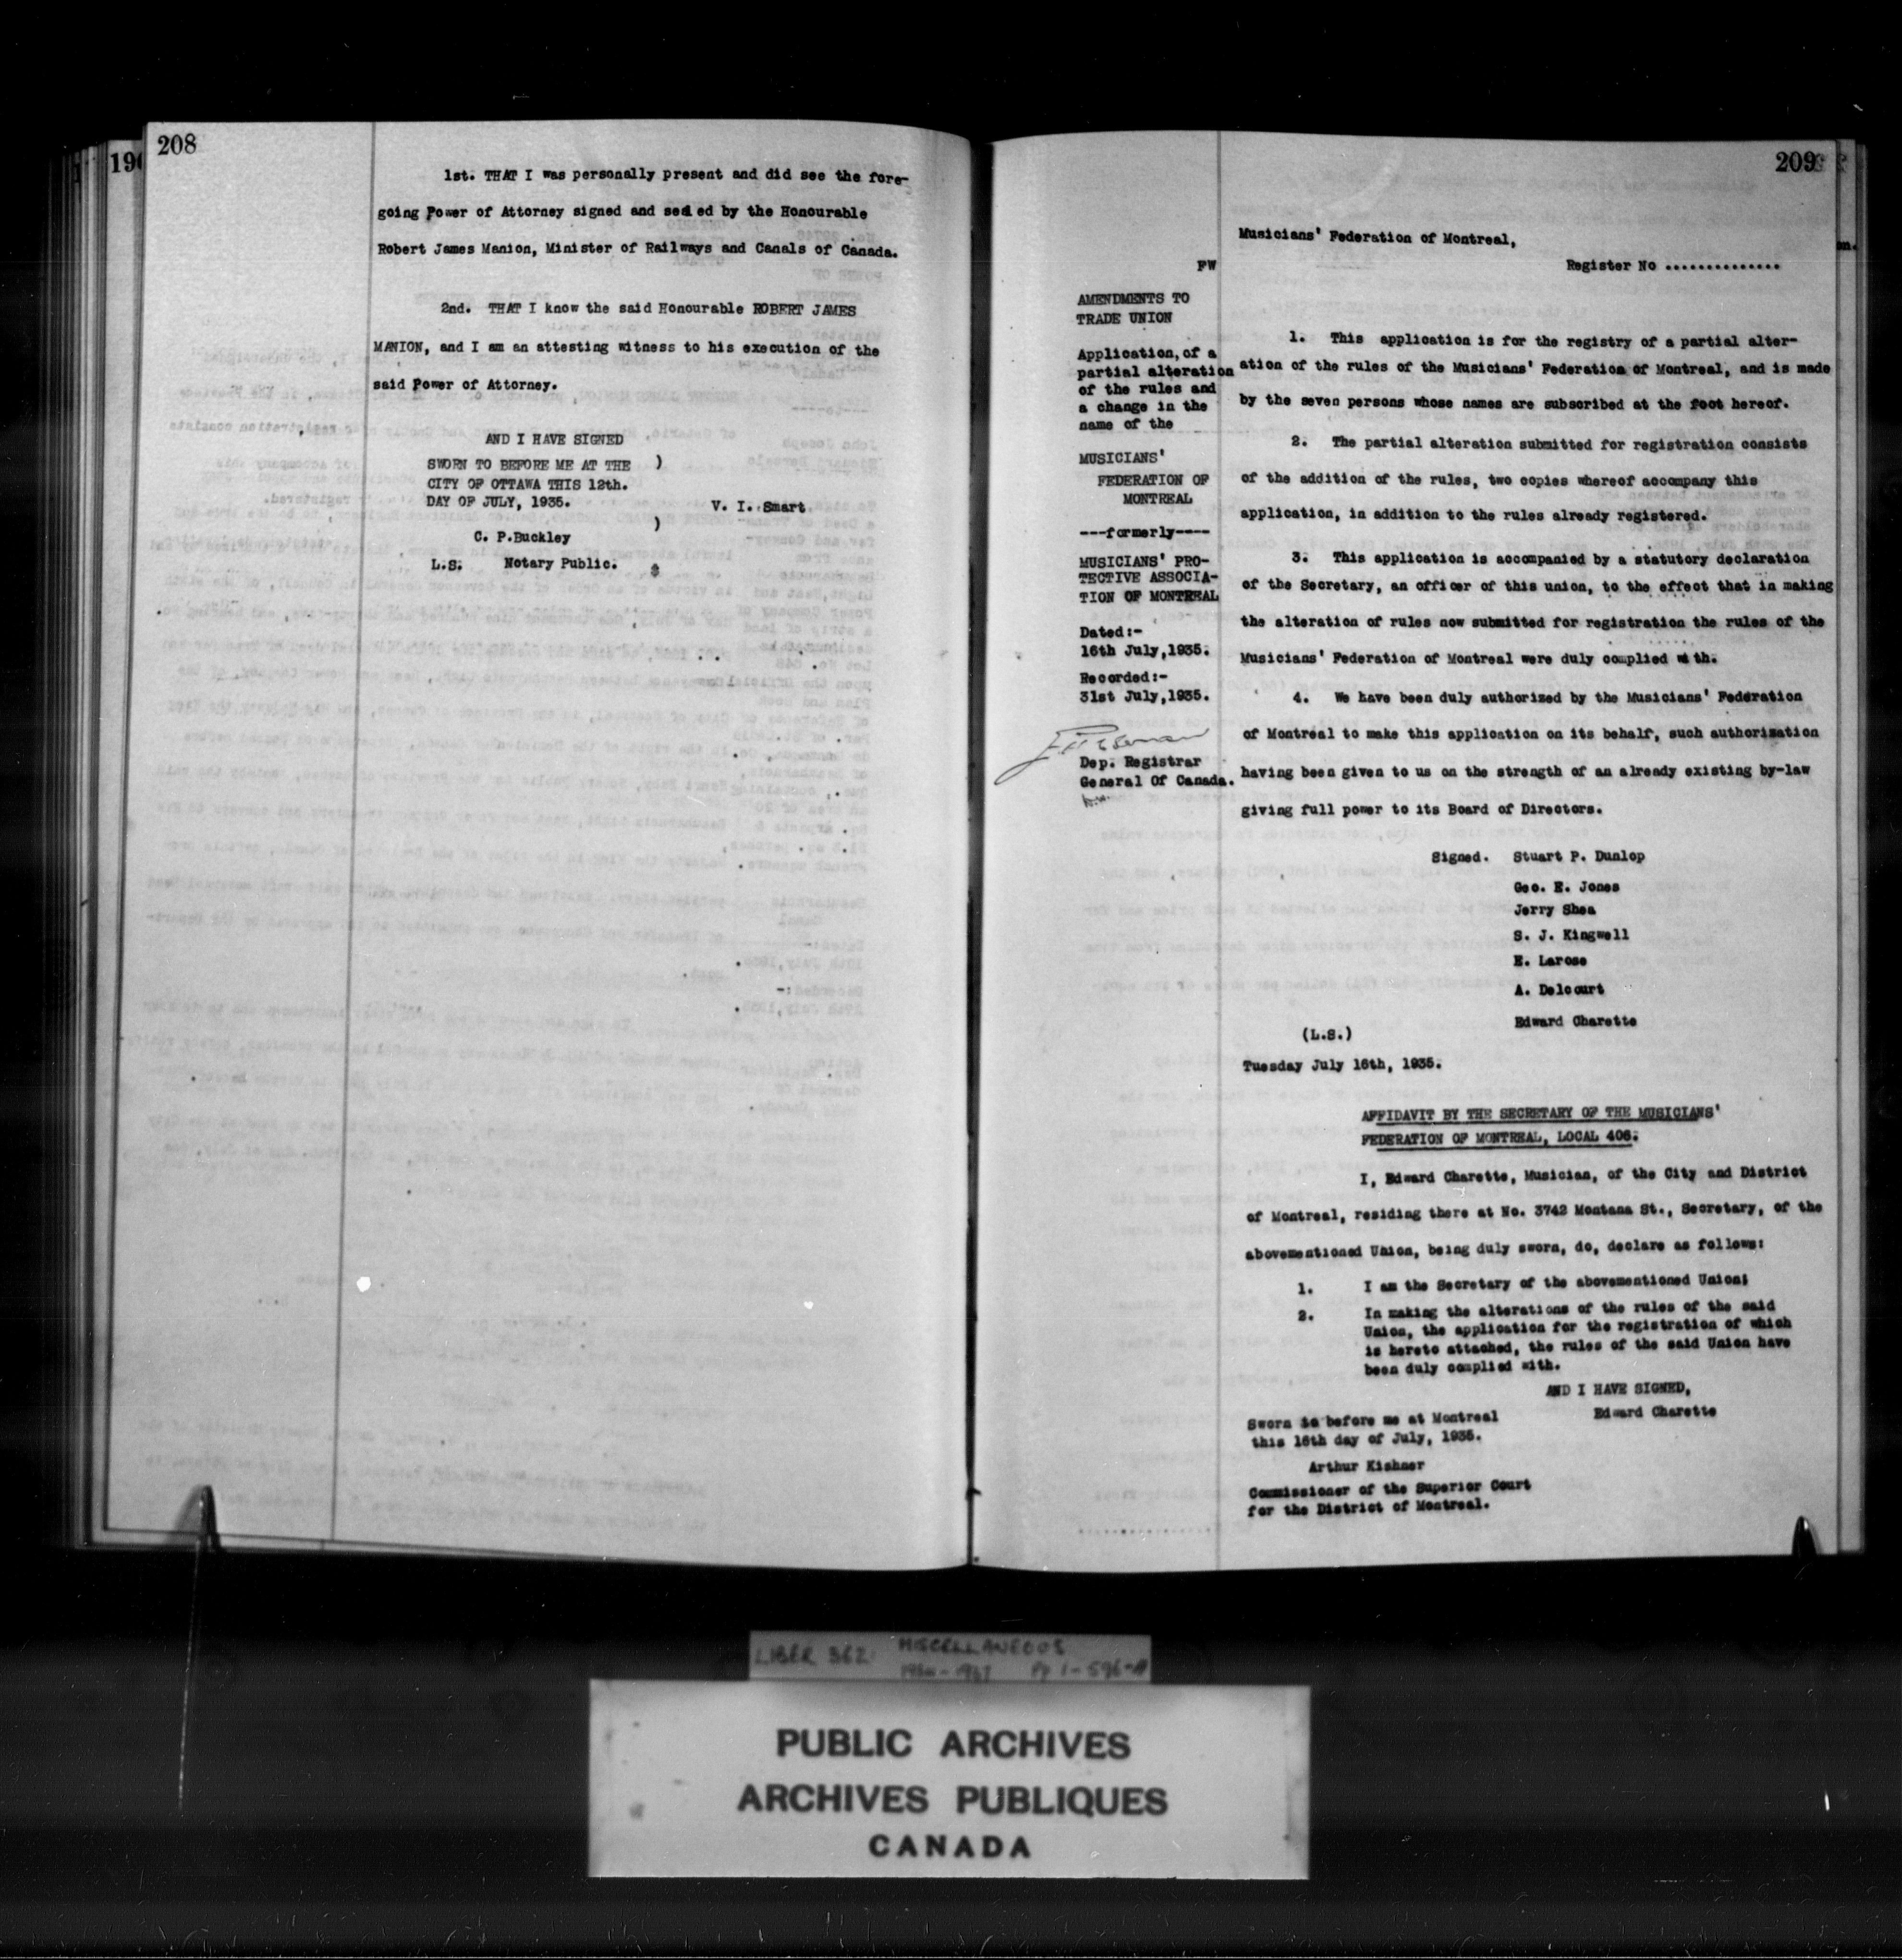 208
190
1st. THAT I was personally present and did see the fore-
going Power of Attorney signed and sealed by the Honourable
Robert James Manion, Minister of Railways and Canals of Canada.
2nd. THAT I know the said Honourable ROBERT JAMES
MANION, and I am an attesting witness to his execution of the
said Power of Attorney.
AND I HAVE SIGNED
SWORN TO BEFORE ME AT THE )
CITY OF OTTAWA THIS 12th.
DAY OF JULY, 1935. V. I. Smart
)
C. P. Buckley
L.S. Notary Public.
209
FW
AMENDMENTS TO
TRADE UNION
Application, of a
partial alteration
of the rules and
a change in the
name of the
MUSICIANS'
FEDERATION OF
MONTREAL
---formerly----
MUSICIANS' PRO-
TECTIVE ASSOCIA-
TION OF MONTREAL
Dated:-
16th July,1935.
Recorded:-
31st July,1935.
Dep. Registrar
General Of Canada.
Musicians' Federation of Montreal,
Register No ..............
1. This application is for the registry of a partial alter-
ation of the rules of the Musicians' Federation of Montreal, and is made
by the seven persons whose names are subscribed at the foot hereof.
2. The partial alteration submitted for registration consists
of the addition of the rules, two copies whereof accompany this
application, in addition to the rules already registered.
3. This application is accompanied by a statutory declaration
of the Secretary, an officer of this union, to the effect that in making
the alteration of rules now submitted for registration the rules of the
Musicians' Federation of Montreal were duly complied with.
4. We have been duly authorized by the Musicians' Federation
of Montreal to make this application on its behalf, such authorization
having been given to us on the strength of an already existing by-law
giving full power to its Board of Directors.
Signed. Stuart P. Dunlop
Geo. E. Jones
Jerry Shea
S. J. Kingwell
E. Larose
A. Delcourt
Edward Charette
(L.S.)
Tuesday July 16th, 1935.
AFFIDAVIT BY THE SECRETARY OF THE MUSICIANS'
FEDERATION OF MONTREAL, LOCAL 406.
I, Edward Charette, Musician, of the City and District
of Montreal, residing there at No. 3742 Montana St., Secretary, of the
abovementioned Union, being duly sworn, do, declare as follows:
1. I am the Secretary of the abovementioned Union;
2. In making the alterations of the rules of the said
Union, the application for the registration of which
is hereto attached, the rules of the said Union have
been duly complied with.
AND I HAVE SIGNED,
Edward Charette
Sworn to before me at Montreal
this 16th day of July, 1935.
Arthur Kishner
Commissioner of the Superior Court
for the District of Montreal.
LIBER 362 MISCELLANEOUS
1934-1937 Pp 1-596-A
PUBLIC ARCHIVES
ARCHIVES PUBLIQUES
CANADA